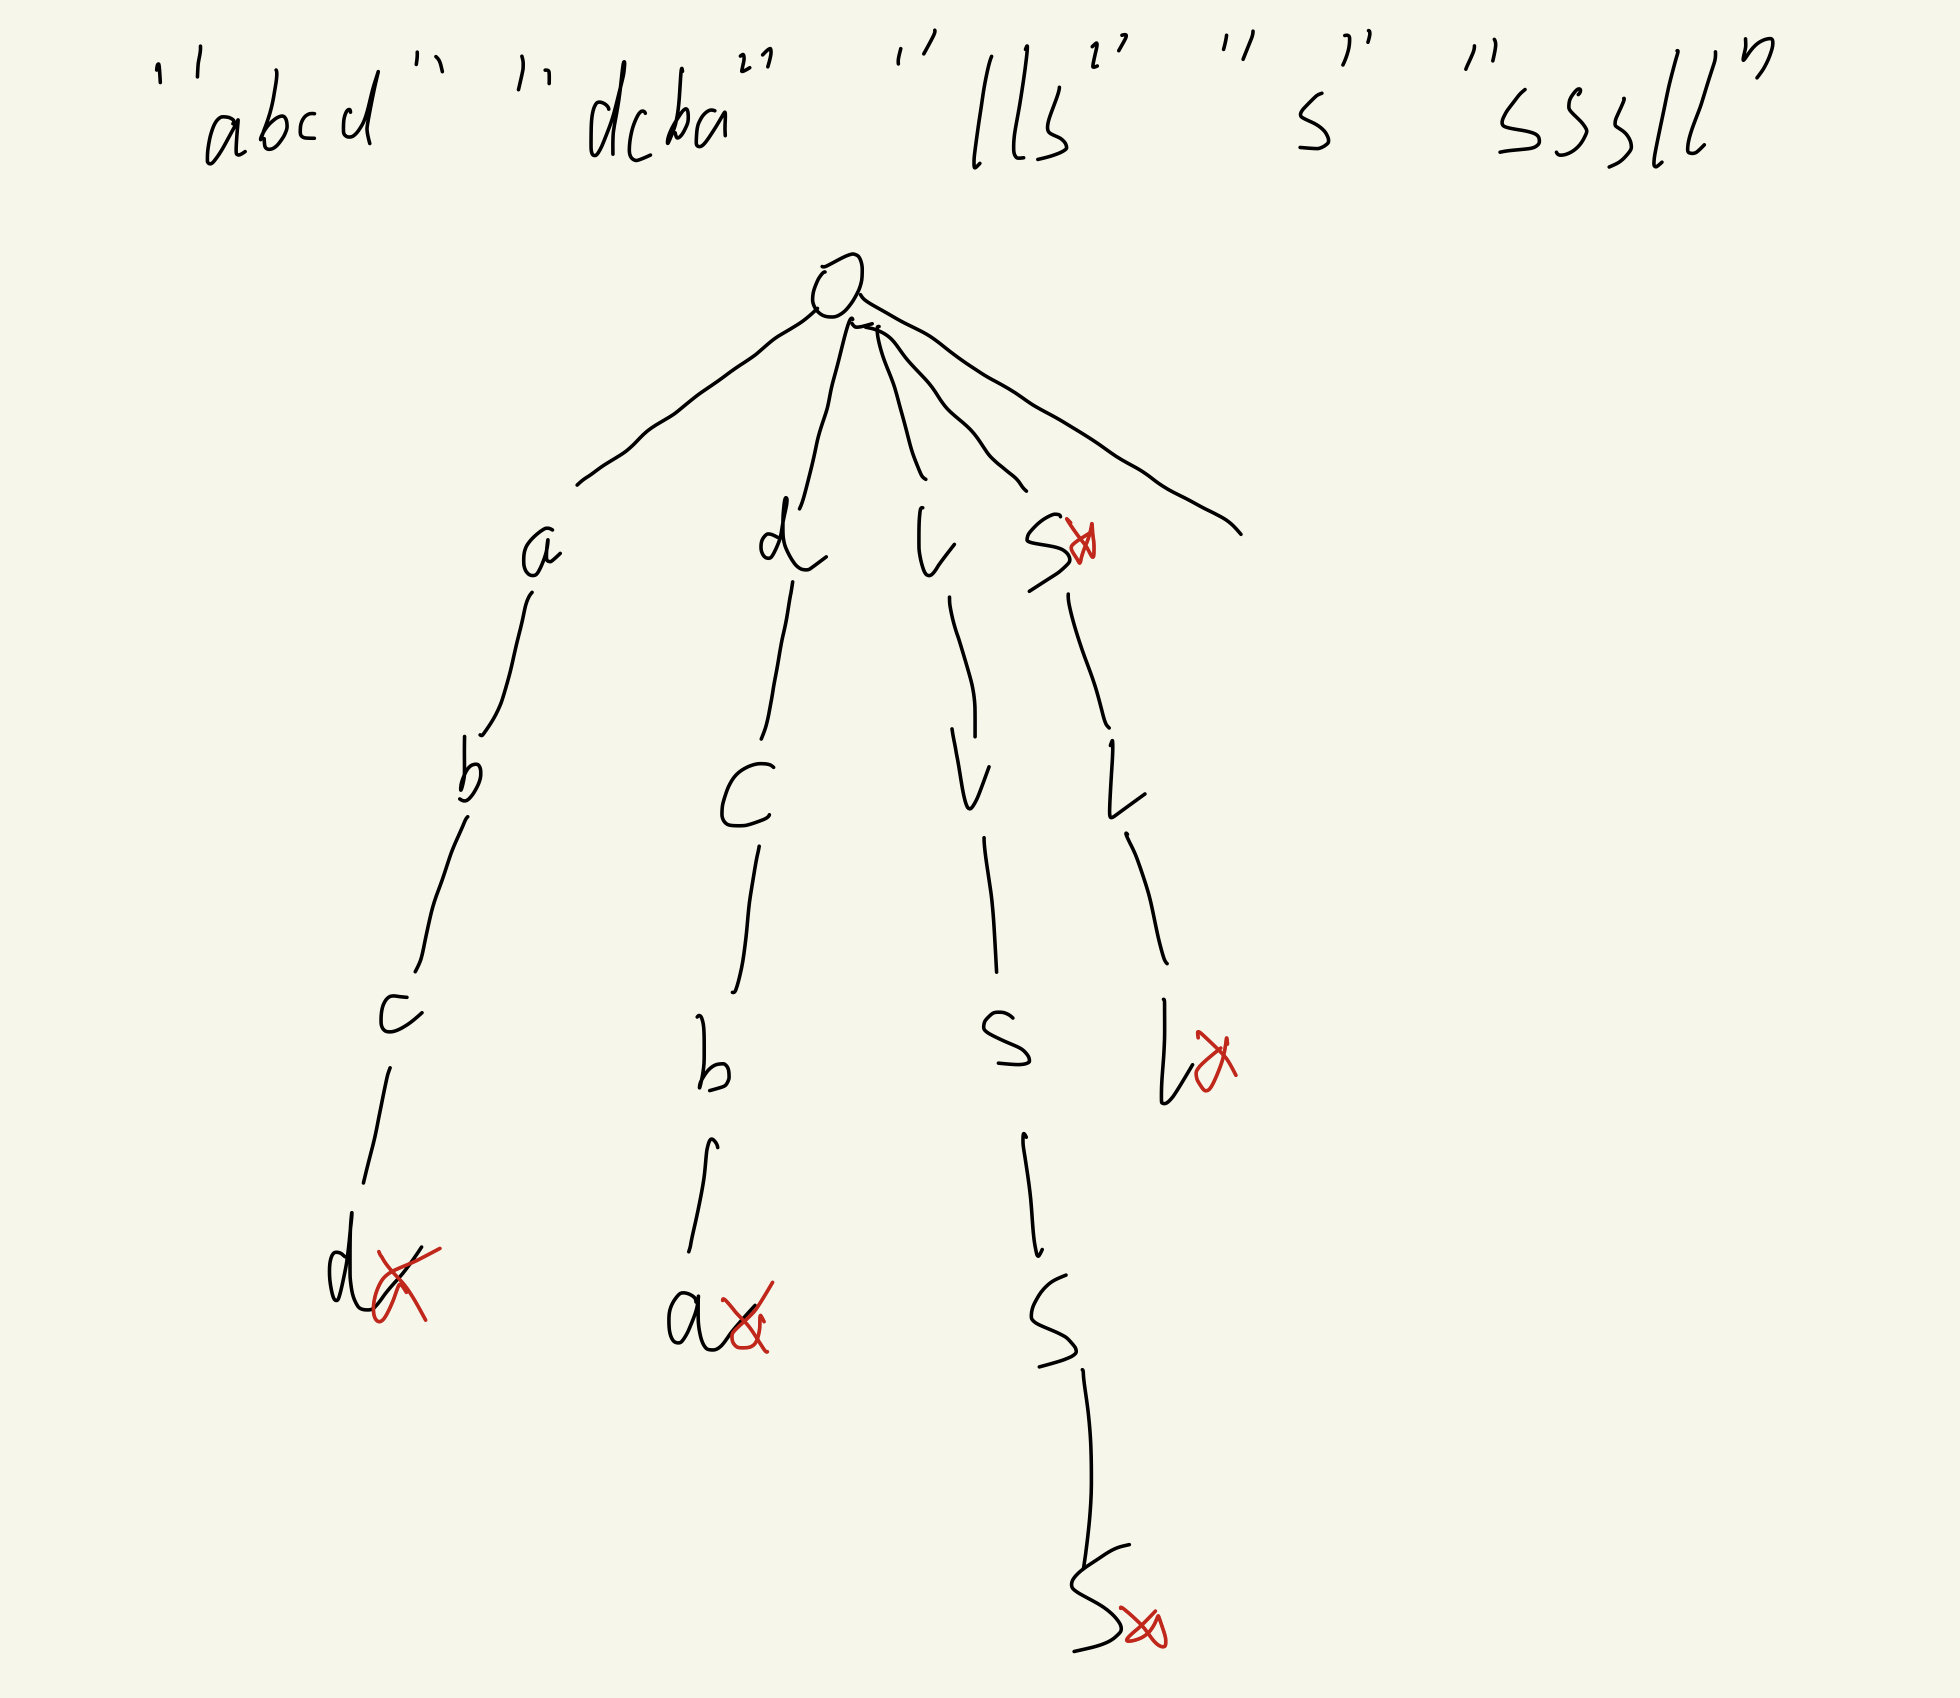 "abcd" "dcba" "lls" "s" "sssll"
a d l s
b c l l
c b s l
d a s
s